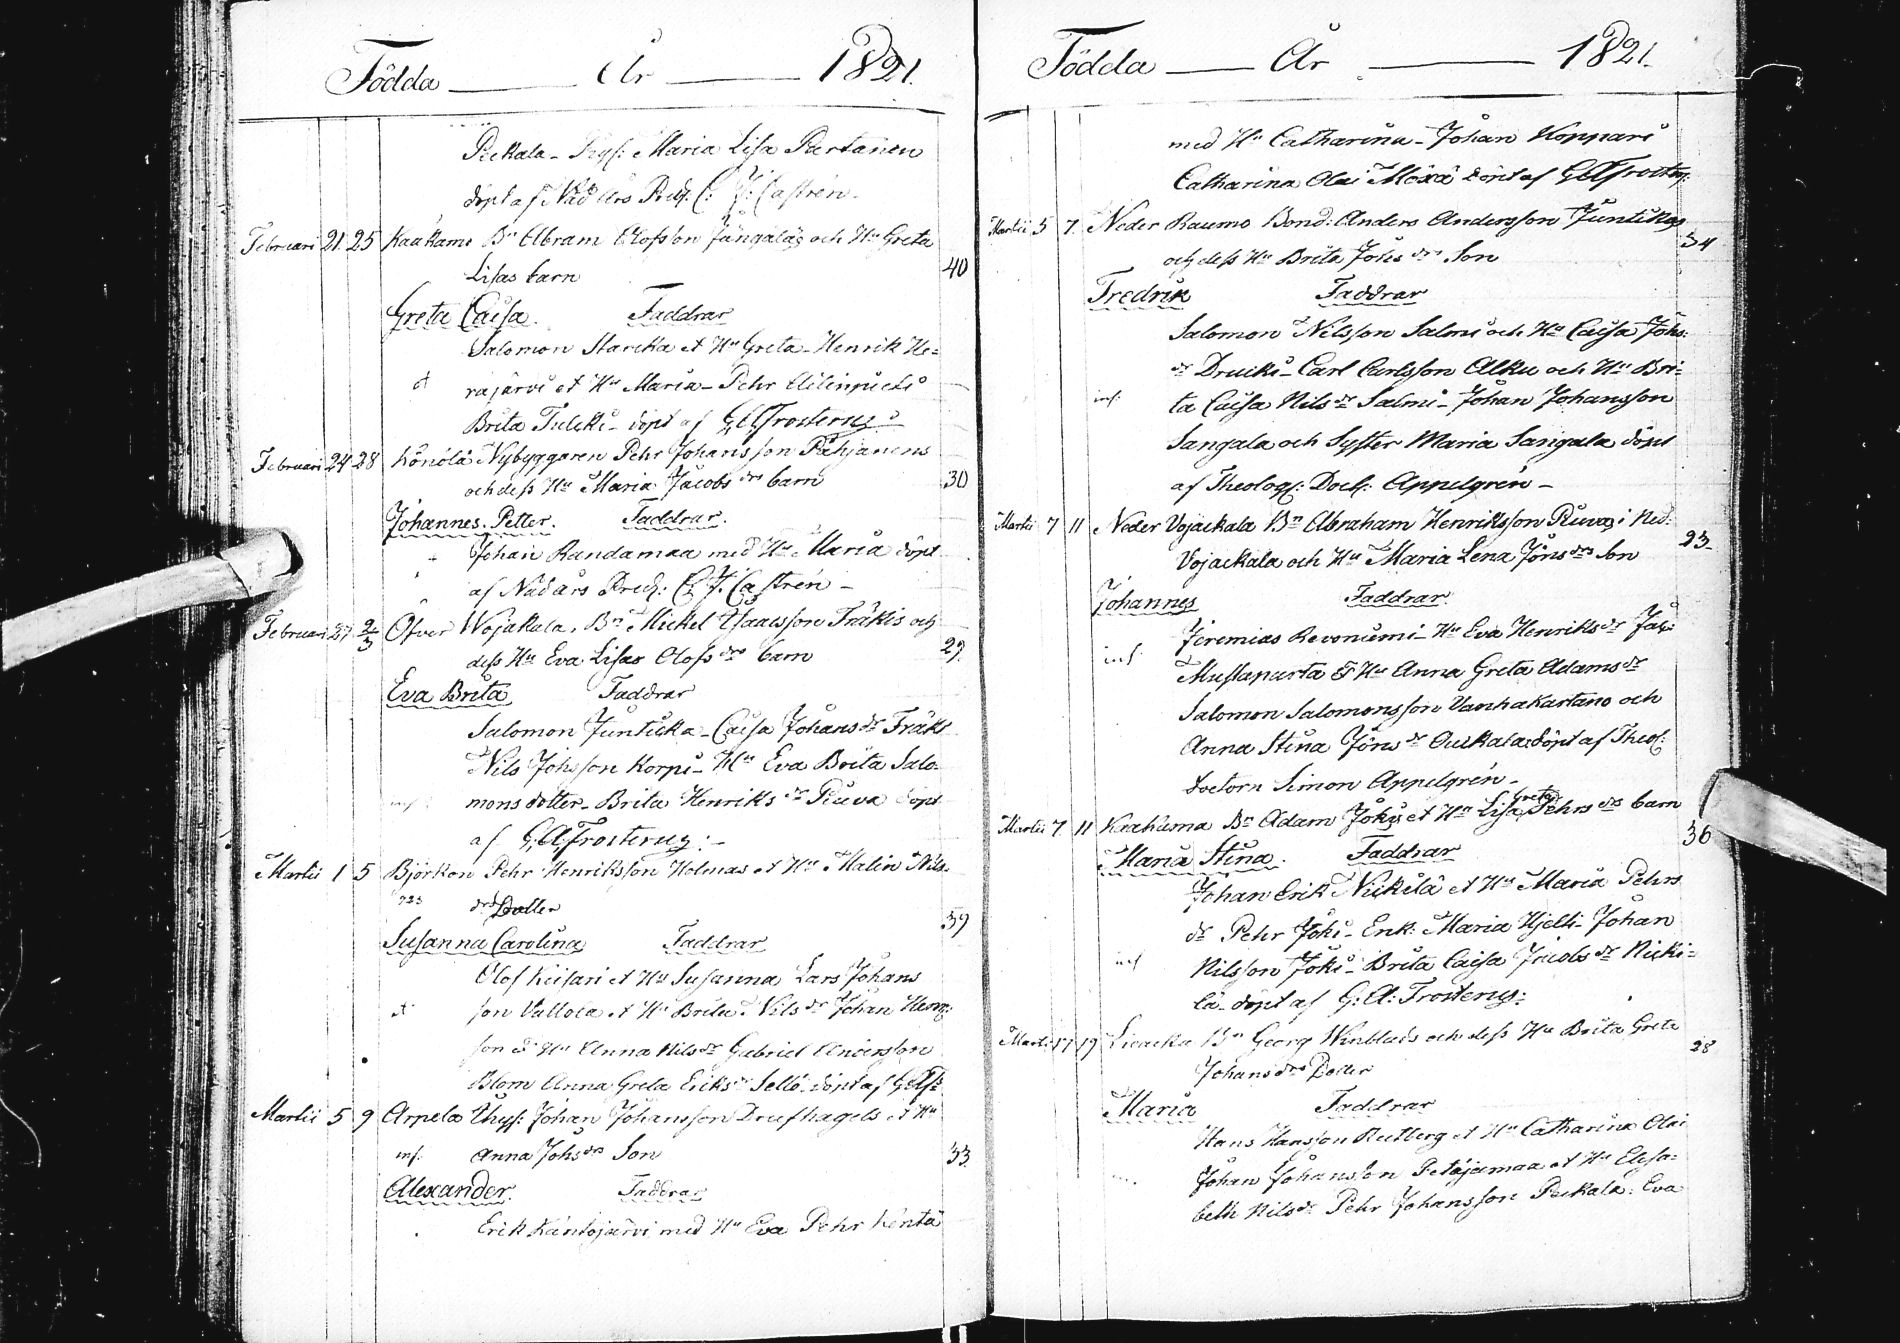 Födda — År — 1821.
Peckala - Maria Lisa Partanen
döpt af Nådårs Pred. C. J. Castrén.
Februari 21. 25 Kaakamo Bn Abram Olofsson Jungalas och Hu Greta
Lisas barn 40
Greta Caisa. Faddrar
Salomon Starcka et Hu Greta - Henrik He=
rajärvi et Hu Maria - Pehr
Brita - döpt af G.A. Frosterus -
Februari 24 28 Könölä Nybyggaren Pehr Johansson Pähjanens
och dess Hu Maria Jacobs drs barn 30
Johannes Petter. Faddrar.
Johan Randamaa med Hu Maria döpt
af Nådårs Pred: C. J. Castrén -
Februari 27 2/3 Öfver Wojakala, Bn Michel Isaacsson Fräkis och
dess Hu Eva Lisas Olofs drs barn 29.
Eva Brita Faddrar
Salomon Junticka - Caisa Johans dr Fräki
Nils Johsson Korpi - Hu Eva Brita Salo-
mons dotter - Brita Henriks dr Ruova döpt
af G.A. Frosterus: -
Martii 1 5 Björkön Pehr Henriksson Holmas et Hu Malin Nils.
drs Dotter 39
Susanna Carolina Faddrar
Olof Keisari et Hu Susanna Lars Johans
son et Hu Brita Nils dr Johan
son & Hu Anna Nils dr Gabriel Andersson
Blom Anna Greta Eriks dr döpt af
Martii 5 9 Arpela Johan Johansson Drufhagels et Hu
inf. Anna Johs drs Son 33
Alexander. Faddrar
Erik Käntöjärvi med Hu Eva Pehr Kenta
Födda — År — 1821.
med Hu Catharina - Johan Koppari
Catharina Olai döpt af
Martii 5 7 Neder Raumo Bond: Anders Andersson Juntickas
och dess Hu Brita Johs drs Son 34
Fredrik Faddrar
Salomon Nilsson Salmi och Hu Caisa Johs.
dr Drucki - Carl Carlsson Alku och Hu Bri-
inf. ta Caisa Nils dr Salmi - Johan Johansson
Sangala och Syster Maria Sangala döpt
af Theolog: Doct: Appelgrén -
Martii 7 11 Neder Vojackala Bn Abraham Henriksson Ruovas i Ned:
Vojackala och Hu Maria Lena Jöns drs Son 23
Johannes Faddrar
Jeremias Revonumi - Hu Eva Henriks dr
inf. Mustaparta & Hu Anna Greta Adams dr
Salomon Salomonsson Vanhakartano och
Anna Stina Jöns dr Ouckala döpt af Theol:
doctorn Simon Appelgrén -
Martii 7 11 Kaakama Bn Adam Jokis et Hu Lisa Greta Pehrs drs barn 36
Maria Stina. Faddrar
Johan Erik Nickilä et Hu Maria Pehrs
dr Pehr Joki - Enk: Maria Hjelti - Johan
inf Nilsson Joki - Brita Caisa Jacobs dr Nicki-
lä döpt af G: A: Frosterus:
Martii 17 19 Liedacka Bn Georg Winblads och dess Hu Brita Greta
Johans drs Dotter 28
Maria Faddrar
Hans Hansson Rutberg et Hu Catharina Olai
Johan Johansson Petäjämaa et Hu Elisa-
beth Nils dr Pehr Johansson Peckala. Eva